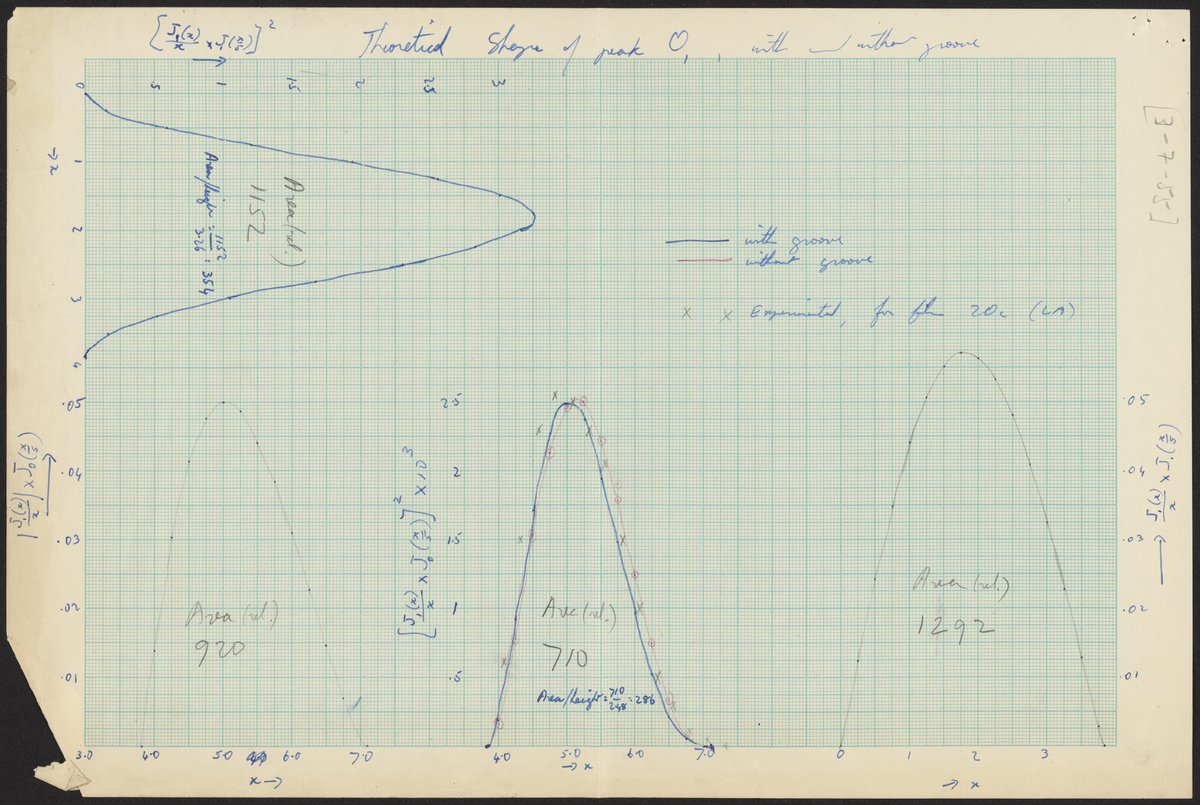 [J₁(x)/x × J₁(x/5)]²
Theoretical Shape of peak O₁, with and without groove
0 .5 1 1.5 2 2.5 3
x →
1
2
3
4
Area (rel.)
1152
Area/height = 1152/3.26 = 354
[3-7-55]
with groove
without groove
x x Experimental, for film 20c (LA)
|J₁(x)/x| × J₀(x/5)
.05
.04
.03
.02
.01
Area (rel.)
920
3.0 4.0 5.0 6.0 7.0
x →
[J₁(x)/x × J₀(x/5)]² × 10³
2.5
2
1.5
1
.5
Area (rel.)
710
Area/height = 710/248 = 286
4.0 5.0 6.0 7.0
→ x
Area (rel.)
1292
0 1 2 3
→ x
.05
.04
.03
.02
.01
→ J₁(x)/x × J₁(x/5)